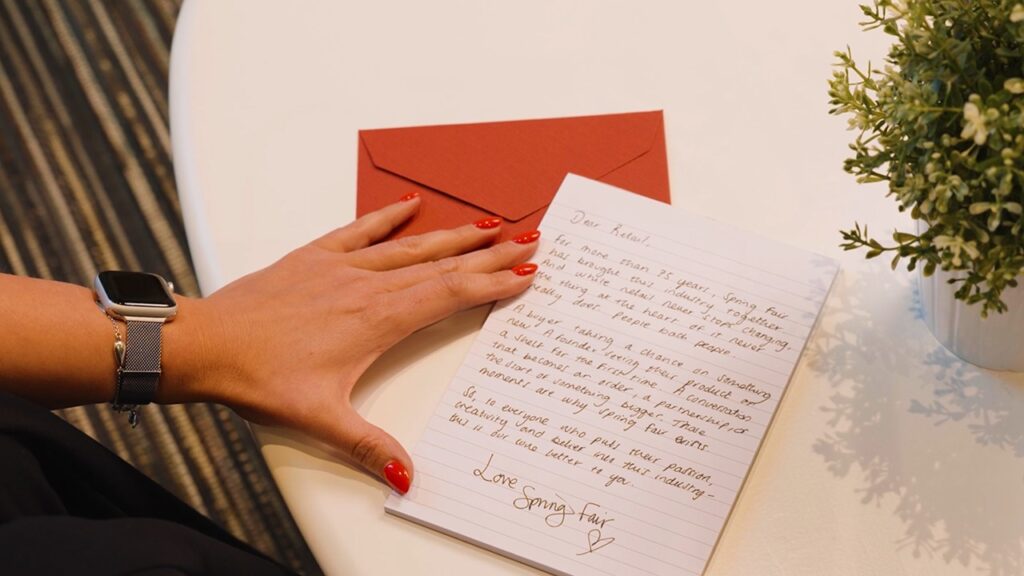 Dear Retail,
For more than 75 years, Spring Fair
has brought this industry together
And while retail never stops changing
the thing at the heart of it never
really does: People back people.
A buyer taking a chance on something
new. A founder seeing their product on
a shelf for the first time. A conversation
that becomes an order, a partnership or
the start of something bigger. Those
moments are why Spring Fair exists.
So, to everyone who puts their passion,
creativity and belief into this industry -
this is our love letter to you.
Love Spring Fair